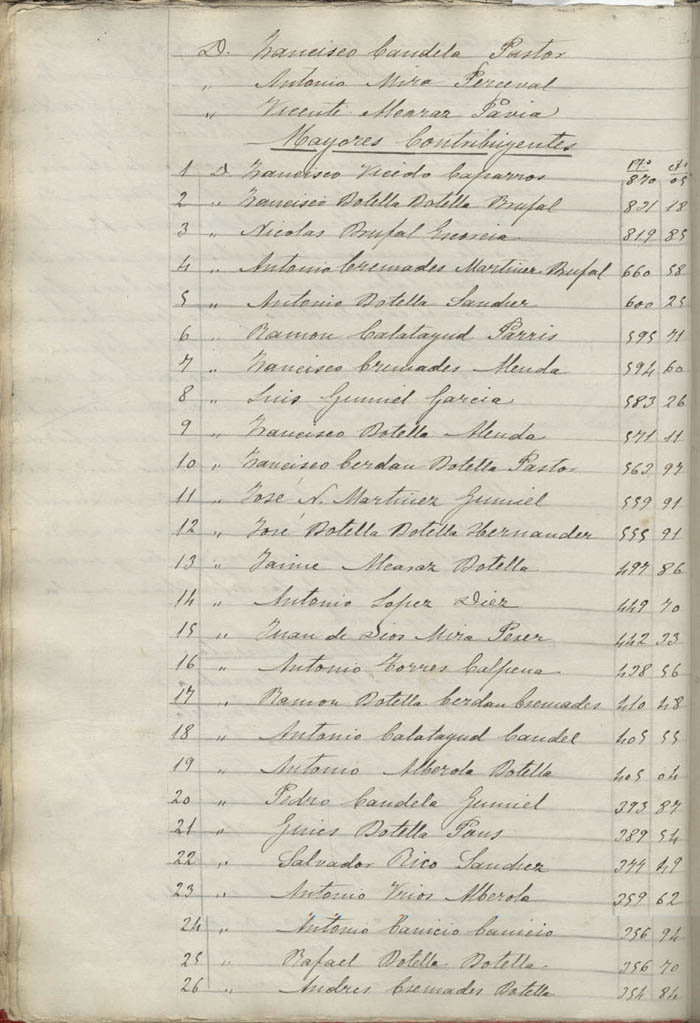 D. Francisco Candela Pastor
" Antonio Mira Perceval
" Vicente Alcaraz Pavia
Mayores Contribuyentes
Pts cts
1 D. Francisco Vicedo Caparros 870 05
2 " Francisco Botella Botella Brufal 831 18
3 " Nicolas Brufal Escorcia 819 85
4 " Antonio Cremades Martinez Brufal 660 58
5 " Antonio Botella Sanchez 600 25
6 " Ramon Calatayud Parris 595 71
7 " Francisco Cremades Alenda 594 60
8 " Luis Gumiel Garcia 583 26
9 " Francisco Botella Alenda 571 11
10 " Francisco Cerdan Botella Pastor 563 97
11 " José N. Martinez Gumiel 559 91
12 " José Botella Botella Hernandez 555 91
13 " Jaime Alcaraz Botella 497 86
14 " Antonio Lopez Diez 449 70
15 " Juan de Dios Mira Perez 442 33
16 " Antonio Torres Calpena 438 56
17 " Ramon Botella Cerdan Cremades 410 48
18 " Antonio Calatayud Candel 405 55
19 " Antonio Alberola Botella 405 04
20 " Pedro Candela Gumiel 393 87
21 " Gines Botella Pons 389 54
22 " Salvador Rico Sanchez 377 49
23 " Antonio Urios Alberola 359 62
24 " Antonio Canicio Canicio 356 94
25 " Rafael Botella Botella 356 70
26 " Andres Cremades Botella 354 84